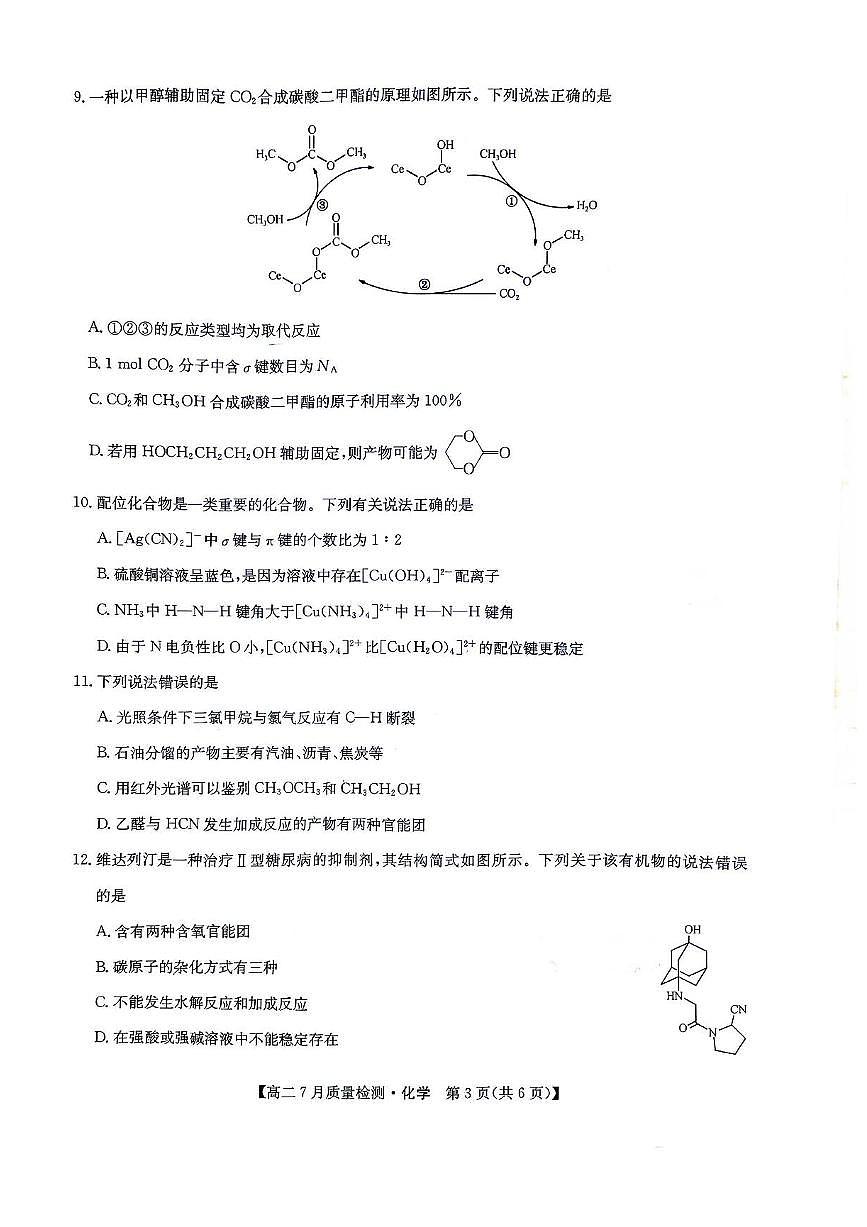 9. 一种以甲醇辅助固定 CO₂合成碳酸二甲酯的原理如图所示。下列说法正确的是
O
H₃C
O
C
O
CH₃
OH
Ce
O
Ce
CH₃OH
③
①
H₂O
CH₃OH
O
O
C
O
CH₃
Ce
O
Ce
②
O
CH₃
Ce
O
Ce
CO₂
A. ①②③的反应类型均为取代反应
B. 1 mol CO₂ 分子中含 σ 键数目为 N_A
C. CO₂和 CH₃OH 合成碳酸二甲酯的原子利用率为 100%
D. 若用 HOCH₂CH₂CH₂OH 辅助固定,则产物可能为 O O =O
10. 配位化合物是一类重要的化合物。下列有关说法正确的是
A. [Ag(CN)₂]⁻中 σ 键与 π 键的个数比为 1∶2
B. 硫酸铜溶液呈蓝色,是因为溶液中存在[Cu(OH)₄]²⁻配离子
C. NH₃中 H—N—H 键角大于[Cu(NH₃)₄]²⁺中 H—N—H 键角
D. 由于 N 电负性比 O 小,[Cu(NH₃)₄]²⁺比[Cu(H₂O)₄]²⁺的配位键更稳定
11. 下列说法错误的是
A. 光照条件下三氯甲烷与氯气反应有 C—H 断裂
B. 石油分馏的产物主要有汽油、沥青、焦炭等
C. 用红外光谱可以鉴别 CH₃OCH₃和 CH₃CH₂OH
D. 乙醛与 HCN 发生加成反应的产物有两种官能团
12. 维达列汀是一种治疗Ⅱ型糖尿病的抑制剂,其结构简式如图所示。下列关于该有机物的说法错误
的是
A. 含有两种含氧官能团
B. 碳原子的杂化方式有三种
C. 不能发生水解反应和加成反应
D. 在强酸或强碱溶液中不能稳定存在
OH
HN
CN
O
N
【高二 7 月质量检测·化学 第 3 页(共 6 页)】